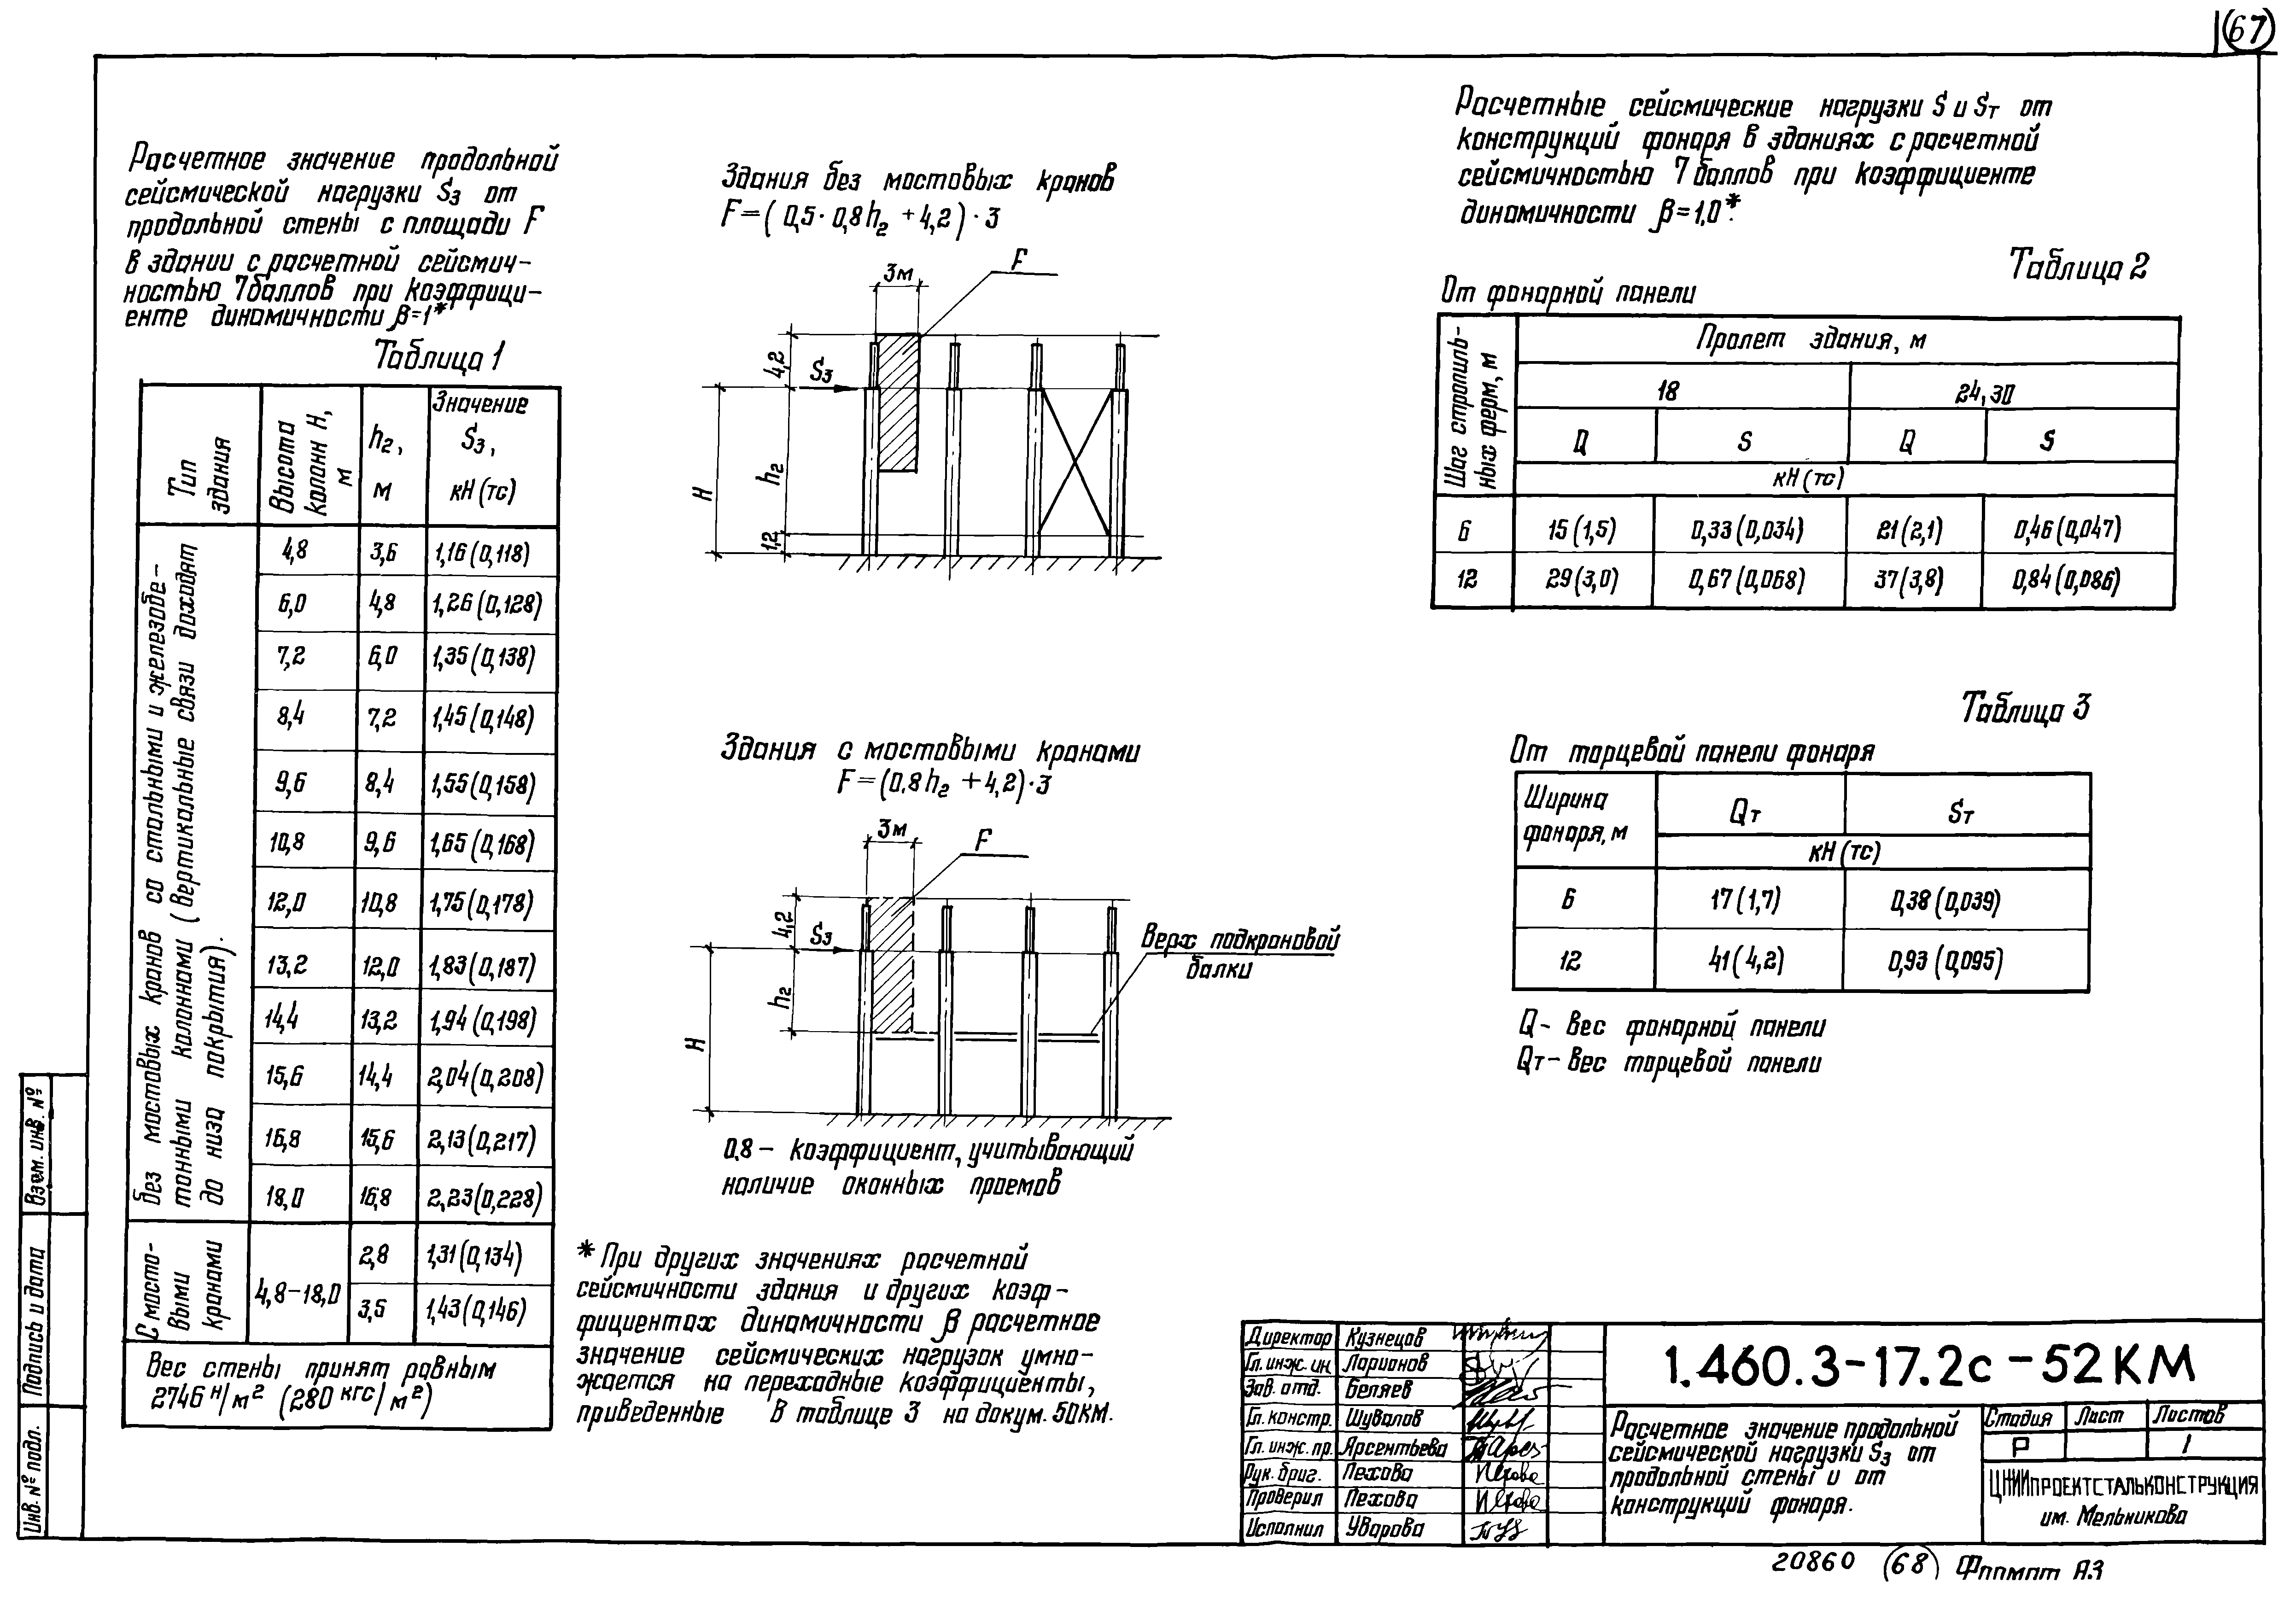 67
Расчетное значение продольной
сейсмической нагрузки S₃ от
продольной стены с площади F
в здании с расчетной сейсмич-
ностью 7 баллов при коэффици-
енте динамичности β=1*
Таблица 1
Тип здания
Высота колонн H, м
h₂, м
Значение S₃, кН (тс)
Без мостовых кранов со стальными и железобе-
тонными колоннами (Вертикальные связи доходят
до низа покрытия).
4,8 3,6 1,16 (0,118)
6,0 4,8 1,26 (0,128)
7,2 6,0 1,35 (0,138)
8,4 7,2 1,45 (0,148)
9,6 8,4 1,55 (0,158)
10,8 9,6 1,65 (0,168)
12,0 10,8 1,75 (0,178)
13,2 12,0 1,83 (0,187)
14,4 13,2 1,94 (0,198)
15,6 14,4 2,04 (0,208)
16,8 15,6 2,13 (0,217)
18,0 16,8 2,23 (0,228)
С мосто-
выми
кранами
4,8-18,0
2,8 1,31 (0,134)
3,5 1,43 (0,146)
Вес стены принят равным
2746 н/м² (280 кгс/м²)
Здания без мостовых кранов
F=(0,5·0,8h₂+4,2)·3
3м
F
4,2
S₃
h₂
H
1,2
Здания с мостовыми кранами
F=(0,8h₂+4,2)·3
3м
F
4,2
S₃
h₂
H
Верх подкрановой
балки
0,8 – коэффициент, учитывающий
наличие оконных проемов
* При других значениях расчетной
сейсмичности здания и других коэф-
фициентах динамичности β расчетное
значение сейсмических нагрузок умно-
жается на переходные коэффициенты,
приведенные в таблице 3 на докум. 50КМ.
Расчетные сейсмические нагрузки S и Sт от
конструкций фонаря в зданиях с расчетной
сейсмичностью 7 баллов при коэффициенте
динамичности β=1,0*.
Таблица 2
От фонарной панели
Шаг стропиль-
ных ферм, м
Пролет здания, м
18 24, 30
Q S Q S
кН (тс)
6 15 (1,5) 0,33 (0,034) 21 (2,1) 0,46 (0,047)
12 29 (3,0) 0,67 (0,068) 37 (3,8) 0,84 (0,086)
Таблица 3
От торцевой панели фонаря
Ширина
фонаря, м
Qт Sт
кН (тс)
6 17 (1,7) 0,38 (0,039)
12 41 (4,2) 0,93 (0,095)
Q- Вес фонарной панели
Qт- Вес торцевой панели
Взам. инв. №
Подпись и дата
Инв. № подл.
Директор Кузнецов
Гл. инж. ин. Ларионов
Зав. отд. Беляев
Гл. констр. Шувалов
Гл. инж. пр. Арсентьева
Рук. бриг. Пехова
Проверил Пехова
Исполнил Уварова
1.460.3-17.2с-52КМ
Расчетное значение продольной
сейсмической нагрузки S₃ от
продольной стены и от
конструкций фонаря.
Стадия Лист Листов
Р 1
ЦНИИпроектстальконструкция
им. Мельникова
20860 68 Формат А3